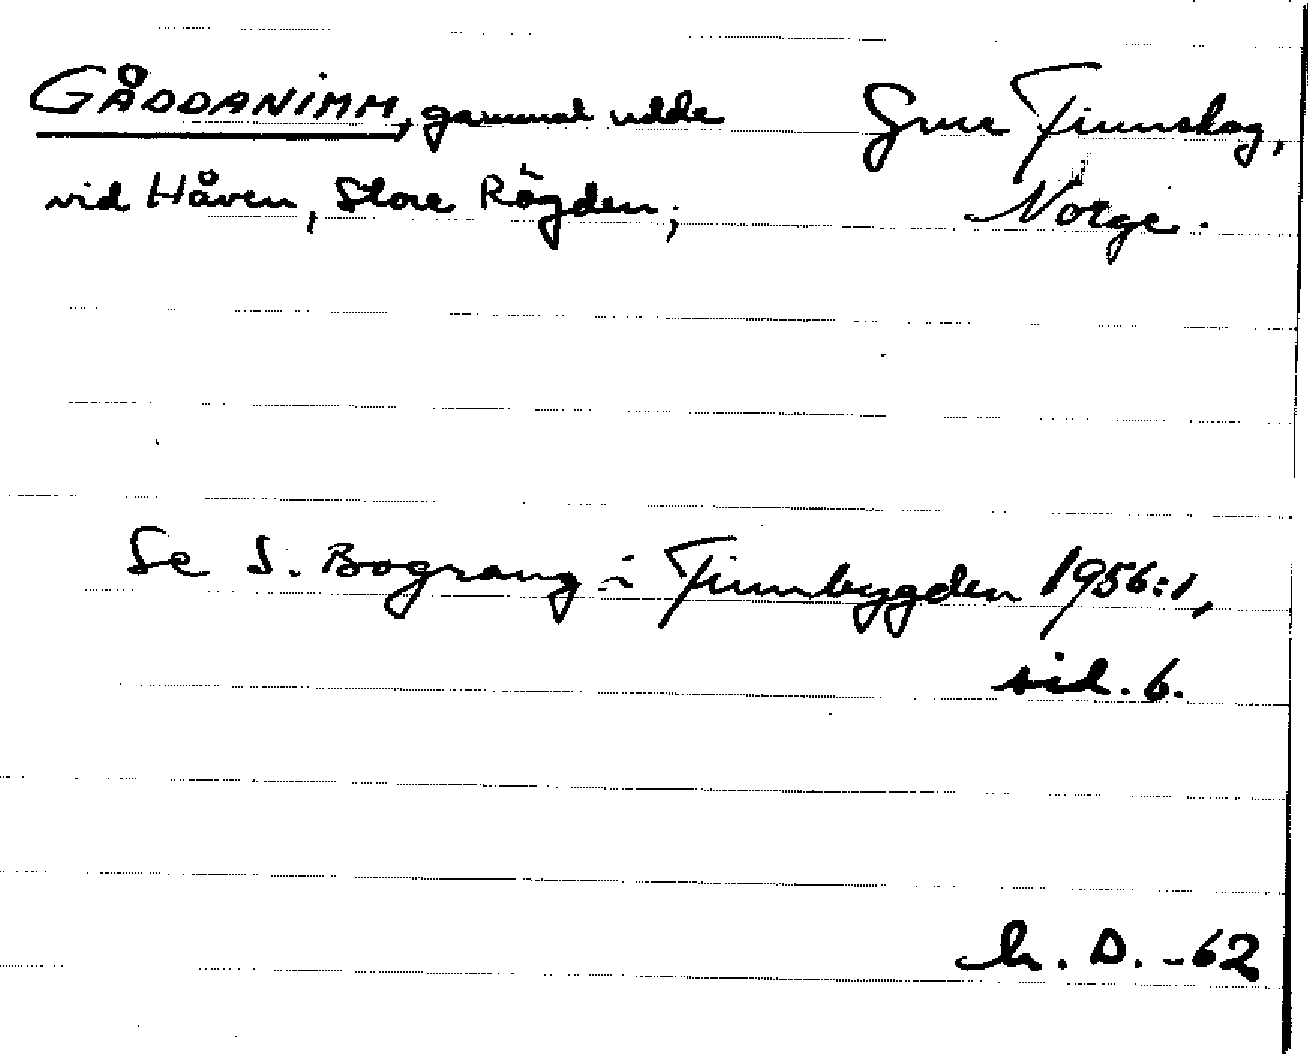 GÅDDANIMM, gammal udde Grue Finnskog,
vid Håven, Store Rögden; Norge.
Se S. Bograng i Finnbygden 1956:1,
sid. 6.
h. D. -62